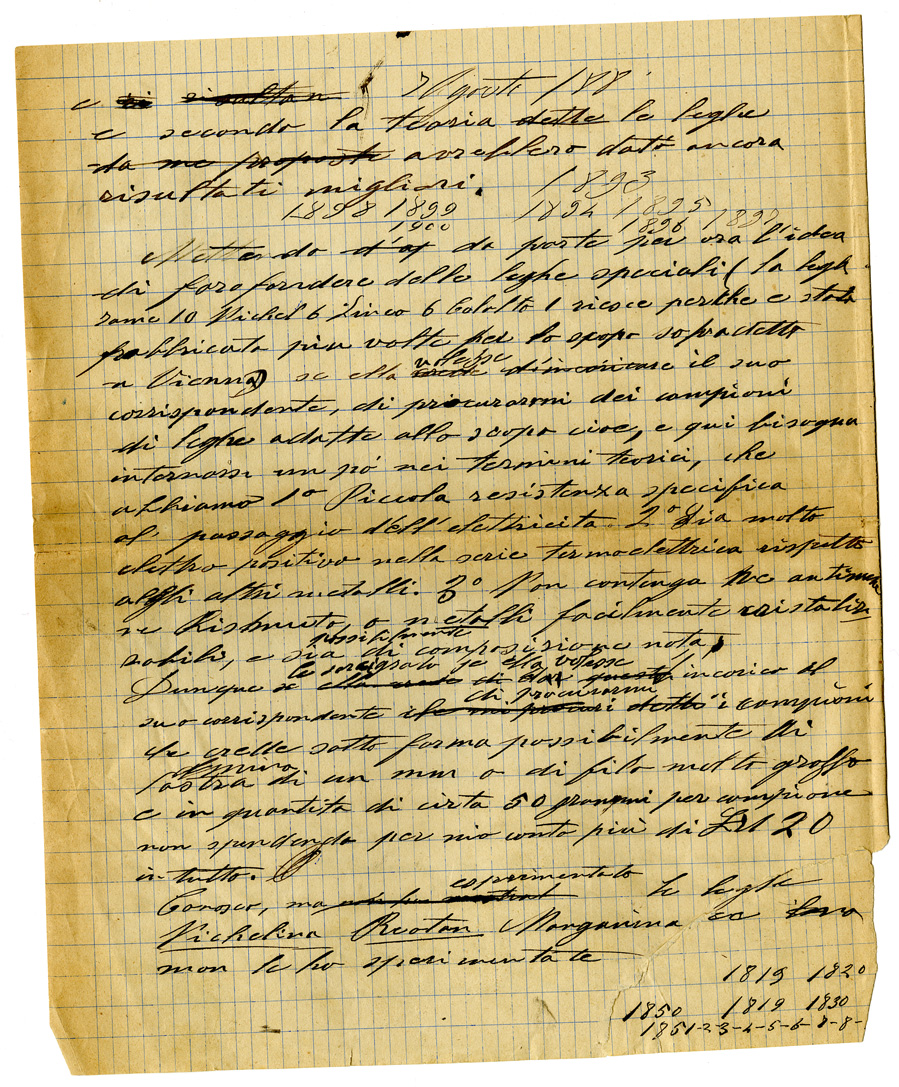 e si risultan 7 Agosto 188
e secondo la teoria dette le leghe
da me proposte avrebbero dato ancora
risultati migliori.
1893
1898 1899 1894 1895
1900 1896 1898
Mettendo d'af da parte per ora l'idea
di farefondere delle leghe speciali (la lega
rame 10 Nichel 6 Zinco 6 Cobalto 1 riesce perche e stata
fabbricata piu volte per lo scopo sopradetto
a Vienna) se ella volesse d'incaricare il suo
corrispondente, di procurarmi dei campioni
di leghe adatte allo scopo cioe, e qui bisogna
internarsi un pó nei termini teorici, che
abbiamo 1º Piccola resistenza specifica
al passaggio dell'elettricita 2º Sia molto
elettro positivo nella serie termoelettrica rispetto
agli altri metalli. 3º Non contenga ne antimonio
ne Bismuto, o metalli facilmente cristaliz
zabili, e sia possibilmente di composizione nota;
le sarei grato se ella volesse
Dunque se ella crede di dar questo incarico al
di procurarmi
suo corrispondente che mi procuri detto i campioni
de crede sotto forma possibilmente di
lastra di un mm o di filo molto grosso
e in quantita di cirta 50 grammi per campione
non spendendo per mio conto più di Lit 20
in tutto.
esperimentato
Conosco, ma le leghe
Nichelina Reotan Manganina ec
non le ho sperimentate
1819 1820
1850 1819 1830
1851-2-3-4-5-6-7-8-